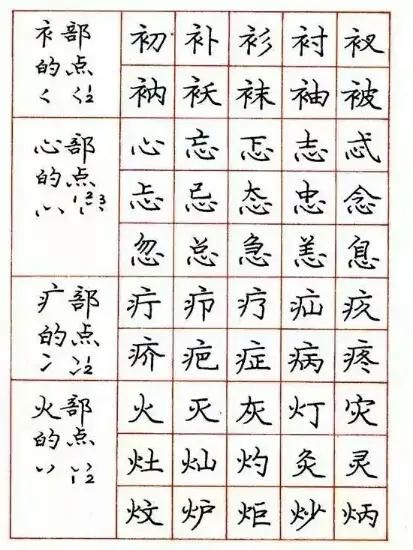 衤部
的点
初 补 衫 衬 衩
衲 袄 袜 袖 被
心部
的点
心 忘 忑 志 忒
忐 忌 态 忠 念
忽 总 急 恙 息
疒部
的点
疔 疖 疗 疝
疥 疤 症 病 疼
火部
的点
火 灭 灰 灯 灾
灶 灿 灼 灸 灵
炆 炉 炬 炒 炳